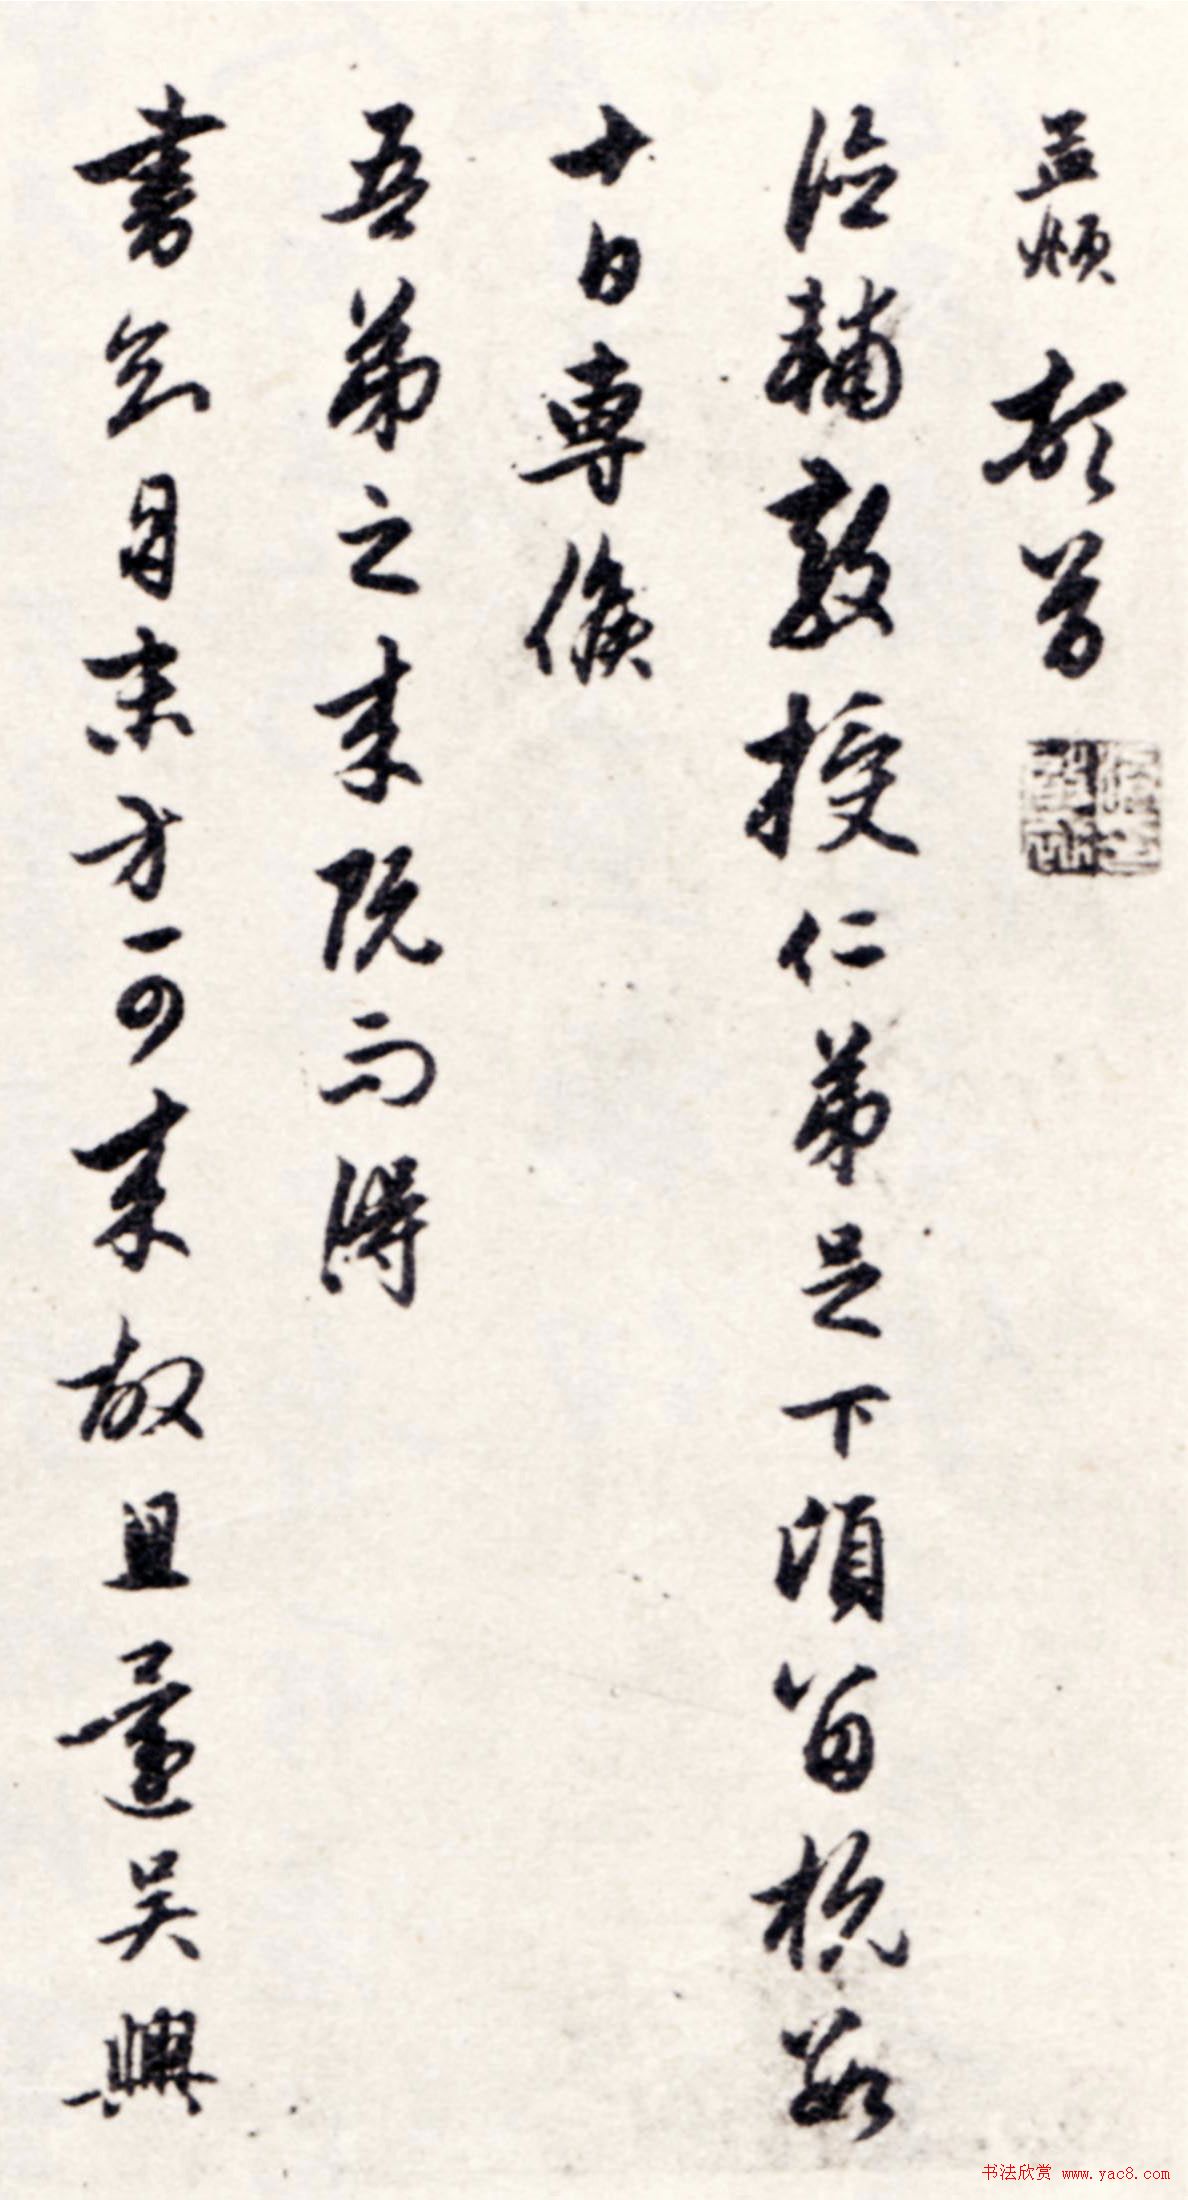 孟頫頓首
德輔教授仁弟足下頃留杭數
十日專候
吾弟之来既而得
書知月末方可来故且還吴興
书法欣赏 www.yac8.com